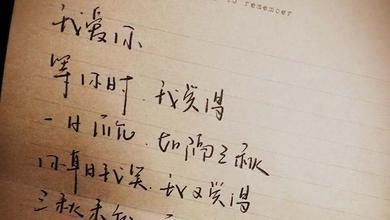 to remember
我爱你
等你时，我觉得
一日，如隔三秋
你朝我笑，我又觉得
三秋未